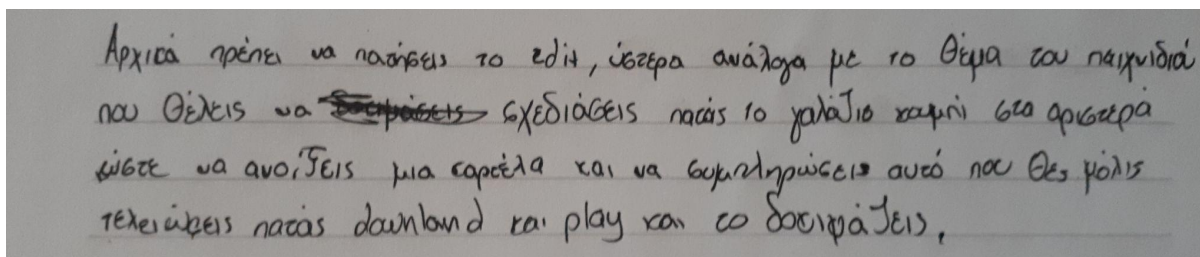 Αρχικά πρέπει να πατήσεις το edit, ύστερα ανάλογα με το θέμα του παιχνιδιά
που θέλεις να σχεδιάσεις πατάς το γαλάζιο κουμπί στα αριστερά
ώστε να ανοίξεις μια καρτέλα και να συμπληρώσεις αυτό που θες μόλις
τελειώσεις πατάς downland και play και το δοκιμάζεις.